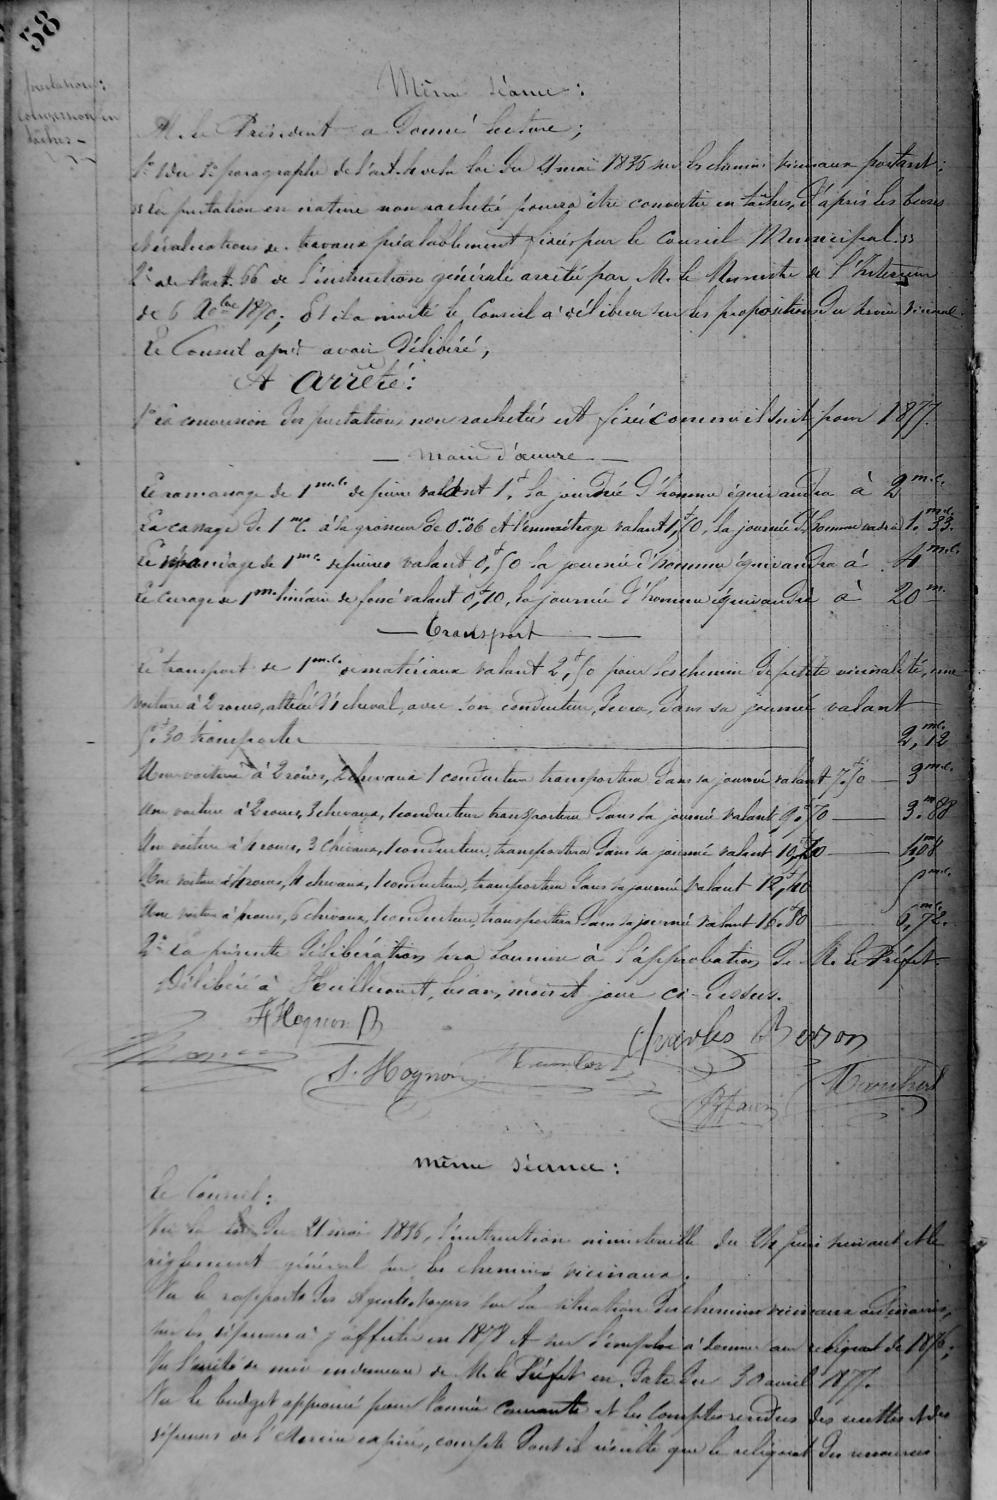 58
prestations:
conversion en
tâches -
Même séance:
M. le Président a donné lecture;
1° du 2e paragraphe de l'art. 4 de la loi du 21 mai 1836 sur les chemins vicinaux portant:
"La prestation en nature non rachetée pourra être convertie en tâches, d'après les bases
et évaluations de travaux préalablement fixées par le Conseil Municipal."
2° de l'art. 66 de l'instruction générale arrêtée par M. le Ministre de l'Intérieur
de 6 Xbre 1870; Et il a invité le Conseil à délibérer sur les propositions du Service vicinal.
Le Conseil après avoir délibéré,
A arrêté:
1° La conversion des prestations non rachetées est fixée comme il suit pour 1877.
— Main d'œuvre —
Le ramassage de 1 m.c. de pierres valant 1f la journée d'homme équivaudra à 2 m.c.
Le cassage de 1 mc à la grosseur de 0.m06 et l'emmétrage valant 1f,50, la journée d'homme vaudra 1.m.c.33.
Le répandage de 1 m.c. de pierres valant 0f,50 la journée d'homme équivaudra à 4 m.c.
Le curage de 1 m. linéaire de fossé valant 0f,10, la journée d'homme équivaudra à 20 m.
— Transport —
Le transport de 1 m.c. de matériaux valant 2f,50 pour les chemins de petite vicinalité, une
voiture à 2 roues, attelée d'1 cheval, avec son conducteur, devra, dans sa journée valant
5f.30 transporter 2,m.c.12
Une voiture à 2 roues, 2 chevaux 1 conducteur transportera dans sa journée valant 7f.50 — 3 m.c.
Une voiture à 2 roues, 3 chevaux, 1 conducteur transportera dans sa journée valant 9f.70 — 3.m88
Une voiture à 4 roues, 3 chevaux, 1 conducteur, transportera dans sa journée valant 10f,20 — 4,m08
Une voiture à 4 roues, 4 chevaux, 1 conducteur, transportera dans sa journée valant 12f,40 5 m.c.
Une voiture à 4 roues, 6 chevaux, 1 conducteur, transportera dans sa journée valant 16f.80 6,mc72.
2° La présente délibération sera soumise à l'approbation de M. le Préfet.
Délibéré à Huilliécourt, les an, mois et jour ci-dessus.
Hognon
Charles Besson
S. Hognon
même séance:
Le Conseil:
Vu la loi du 21 mai 1836, l'instruction ministérielle du 24 juin suivant et le
règlement général sur les chemins vicinaux;
Vu le rapport des Agents-voyers sur la situation des chemins vicinaux ordinaires,
sur les dépenses à y affecter en 1878 et sur l'emploi à donner au reliquat de 1876;
Vu l'arrêté de mise en demeure de M. le Préfet en date du 30 avril 1877.
Vu le budget approuvé pour l'année courante et les comptes rendus des recettes et des
dépenses de l'Exercice expiré, compte dont il résulte que le reliquat des ressources